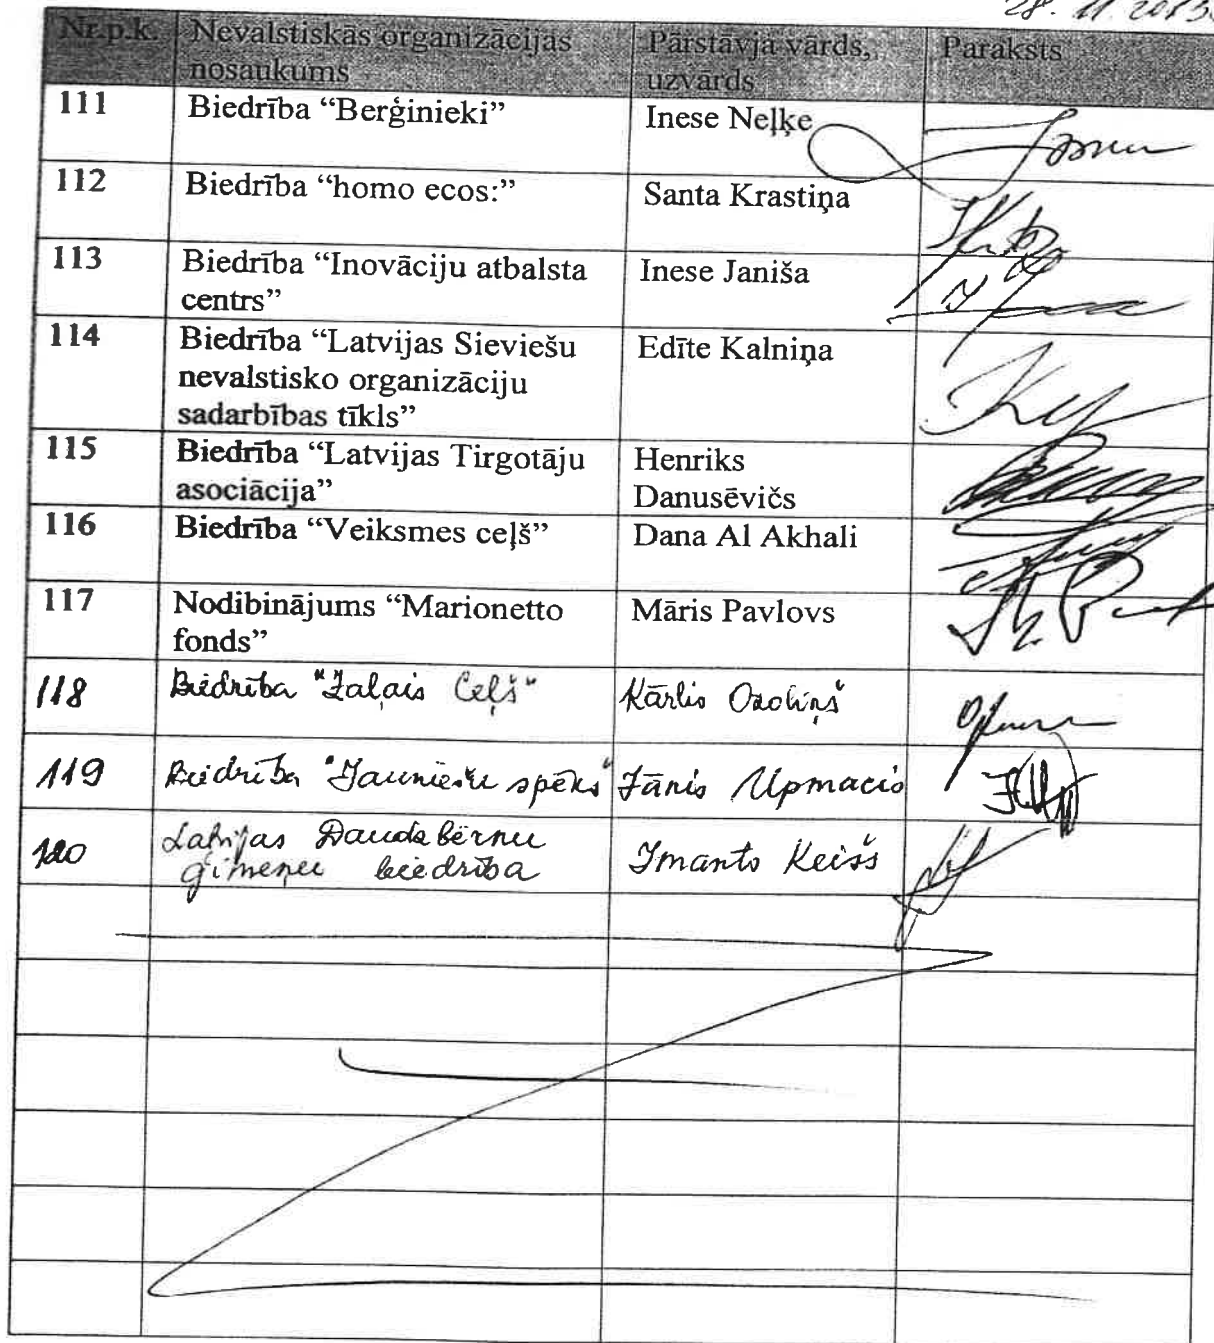 28. 11. 2013.
Nr.p.k. Nevalstiskās organizācijas nosaukums Pārstāvja vārds, uzvārds Paraksts
111 Biedrība “Berģinieki” Inese Neļķe
112 Biedrība “homo ecos:” Santa Krastiņa
113 Biedrība “Inovāciju atbalsta centrs” Inese Janiša
114 Biedrība “Latvijas Sieviešu nevalstisko organizāciju sadarbības tīkls” Edīte Kalniņa
115 Biedrība “Latvijas Tirgotāju asociācija” Henriks Danusēvičs
116 Biedrība “Veiksmes ceļš” Dana Al Akhali
117 Nodibinājums “Marionetto fonds” Māris Pavlovs
118 Biedrība "Zaļais Ceļš" Kārlis Ozoliņš
119 Biedrība "Jauniešu spēks" Jānis Upmacis
120 Latvijas Daudzbērnu ģimeņu biedrība Imants Keišs